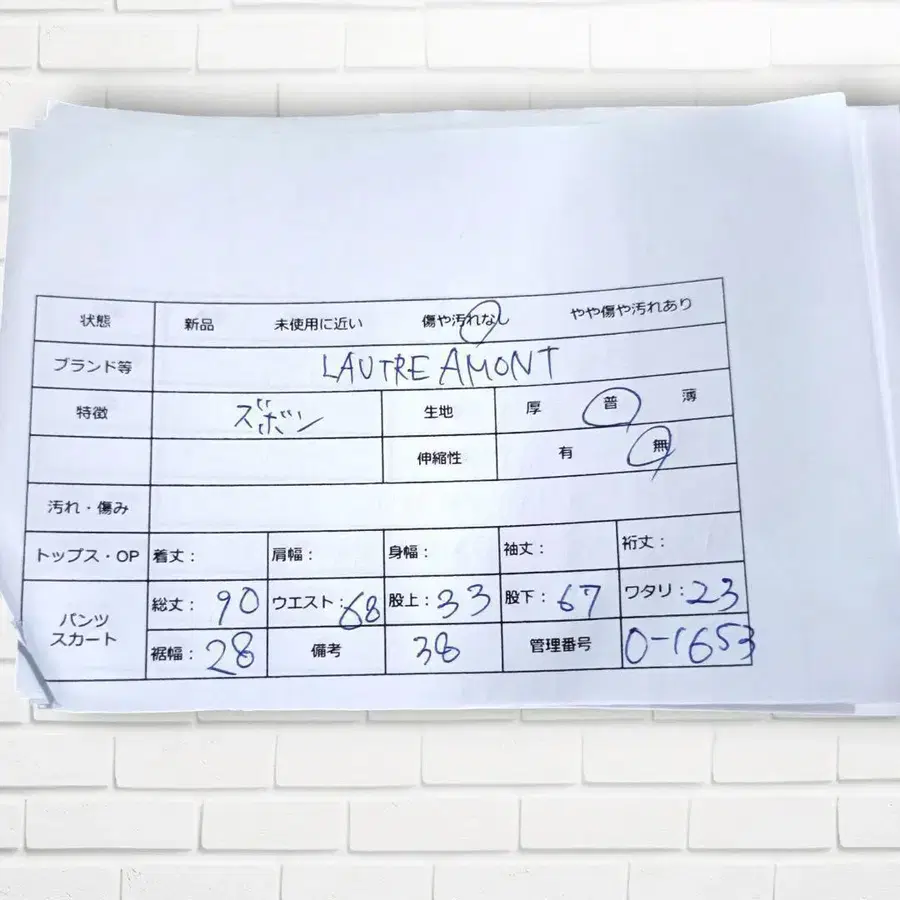 状態 新品 未使用に近い 傷や汚れなし やや傷や汚れあり
ブランド等 LAUTRE AMONT
特徴 ズボン 生地 厚 普 薄
伸縮性 有 無
汚れ・傷み
トップス・OP 着丈: 肩幅: 身幅: 袖丈: 裄丈:
パンツ
スカート
総丈: 90 ウエスト: 68 股上: 33 股下: 67 ワタリ: 23
裾幅: 28 備考 38 管理番号 0-1653